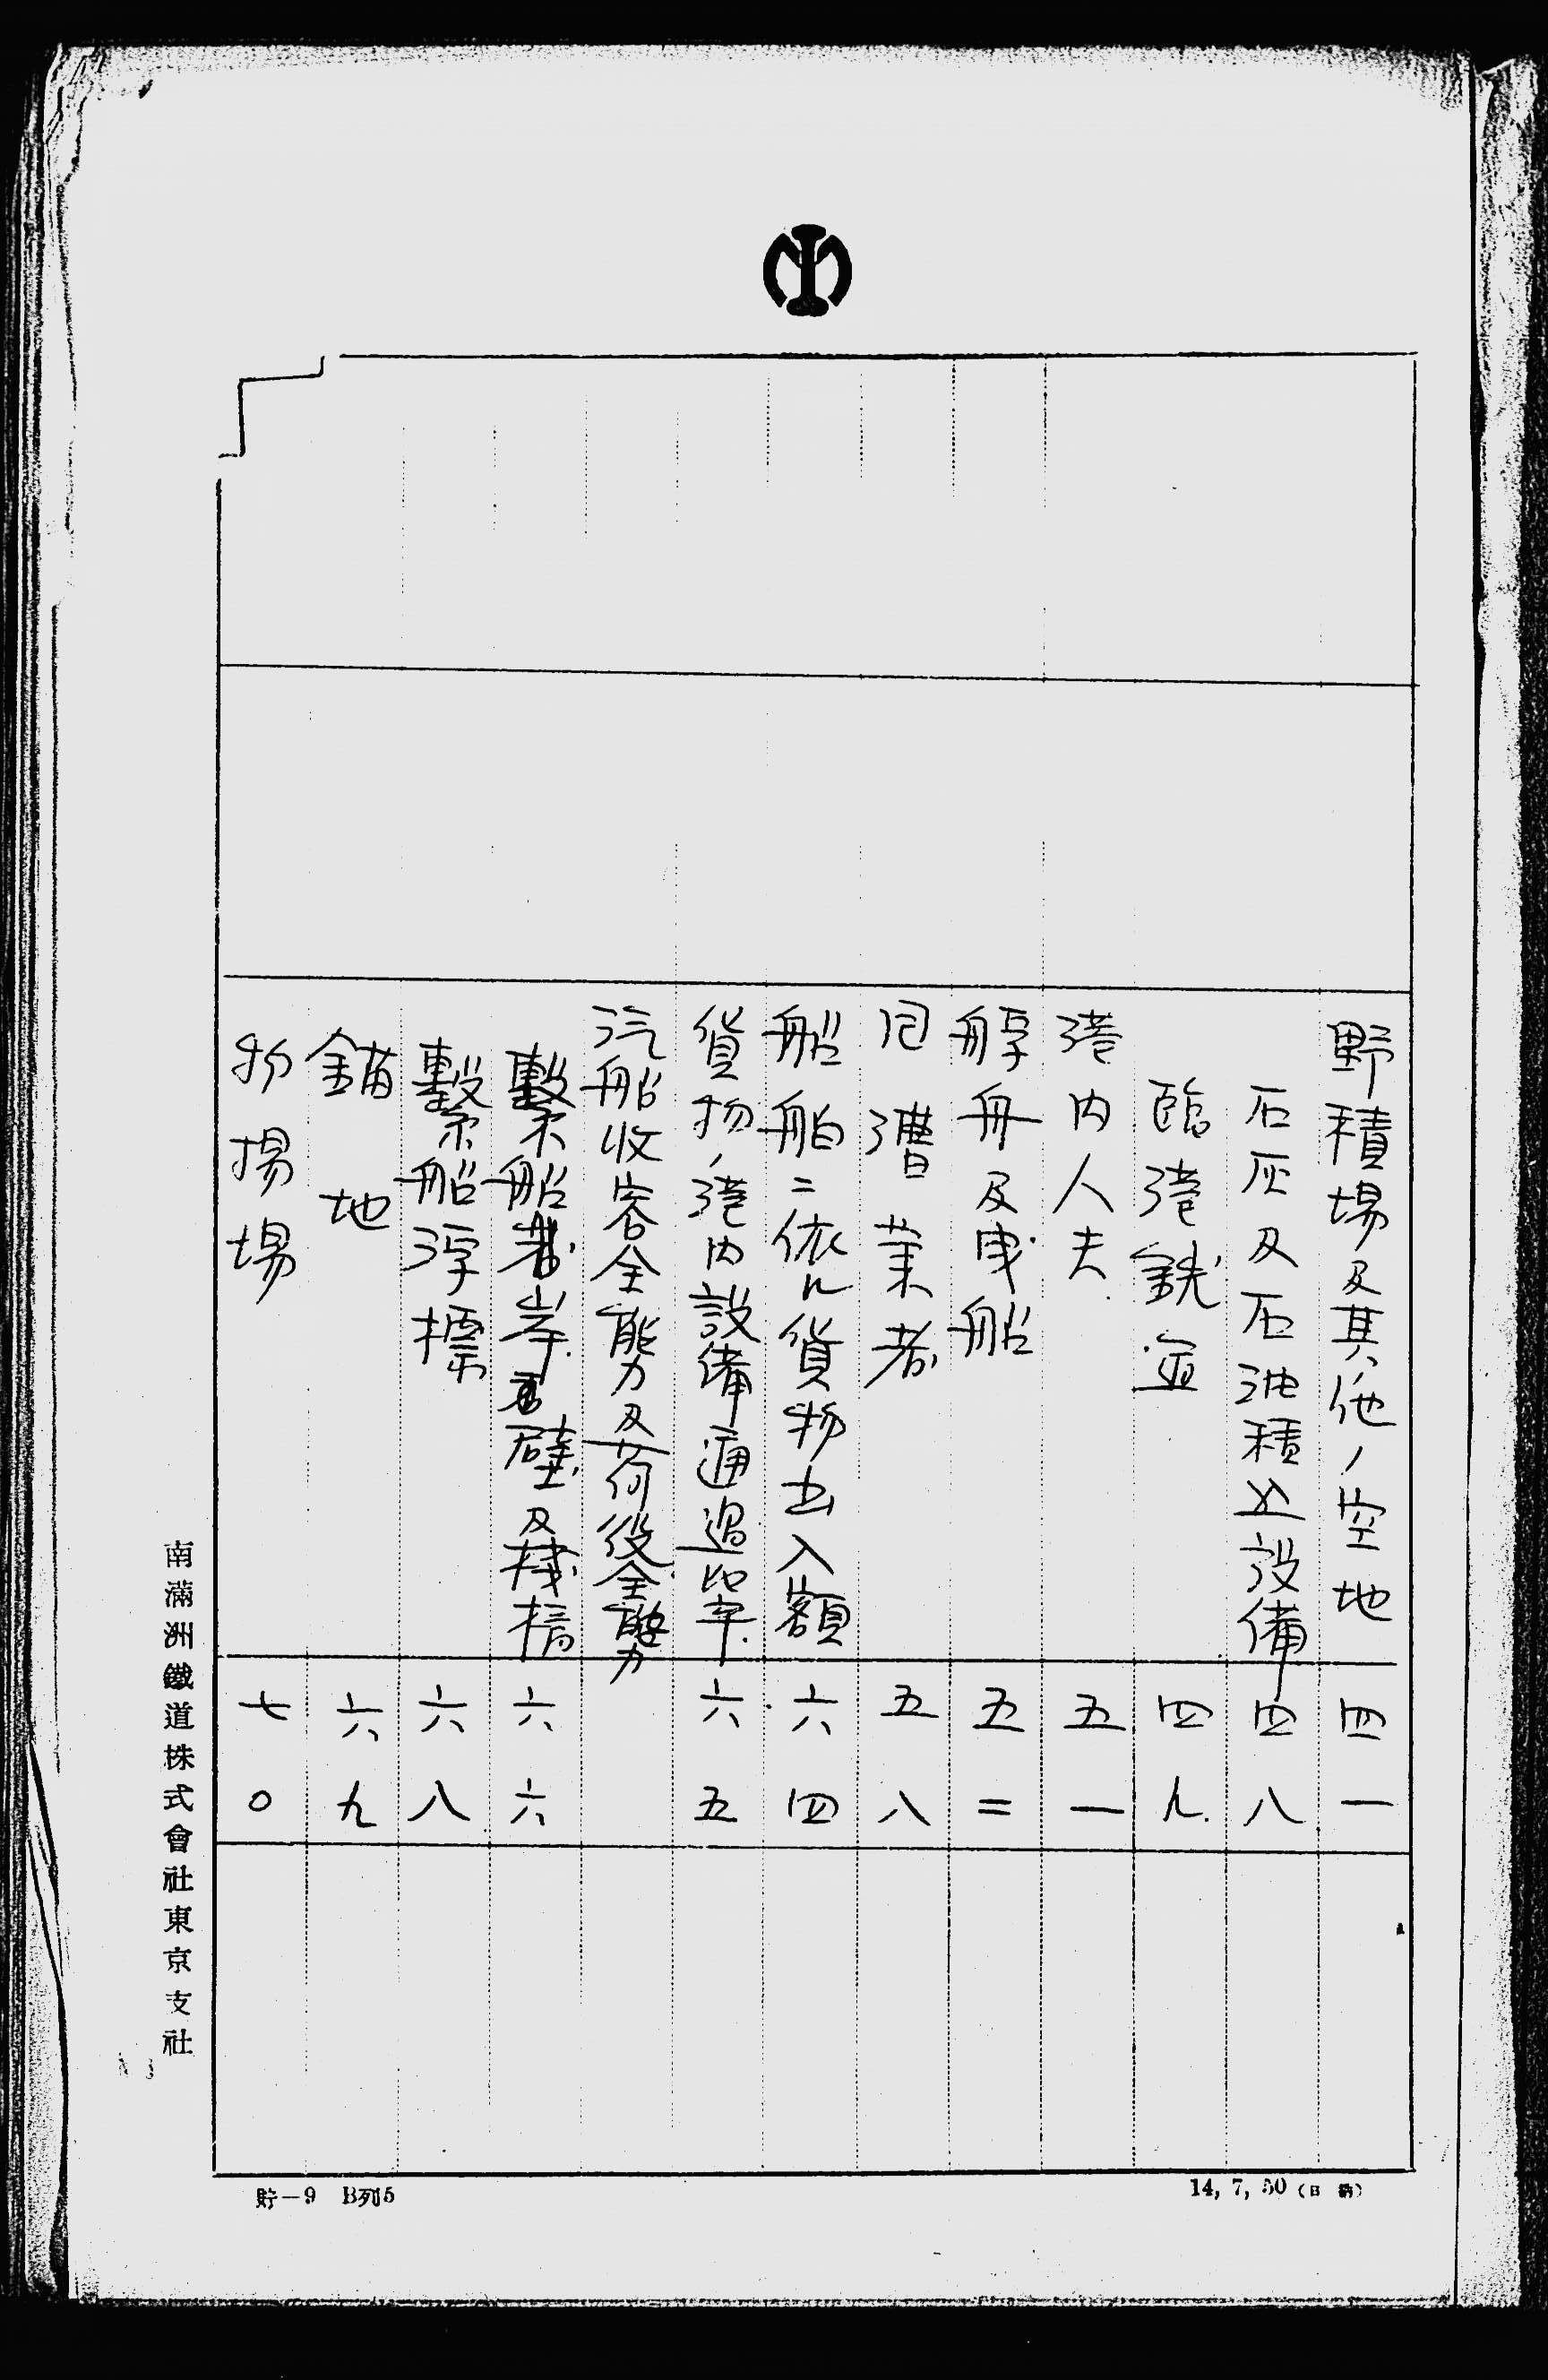 野積場及其他ノ空地 四一
石灰及石油積込設備 四八
臨港鉄道 四九
港内人夫 五一
艀舟及曳船 五二
回漕業者 五八
船舶ニ依ル貨物出入額 六四
貨物ノ港内設備通過比率 六五
汽船收容全能力及荷役全能力
繋船岸壁及棧橋 六六
繋船浮標 六八
錨地 六九
物揚場 七〇
南滿洲鐵道株式會社東京支社
貯－9 B列5
14, 7, 50